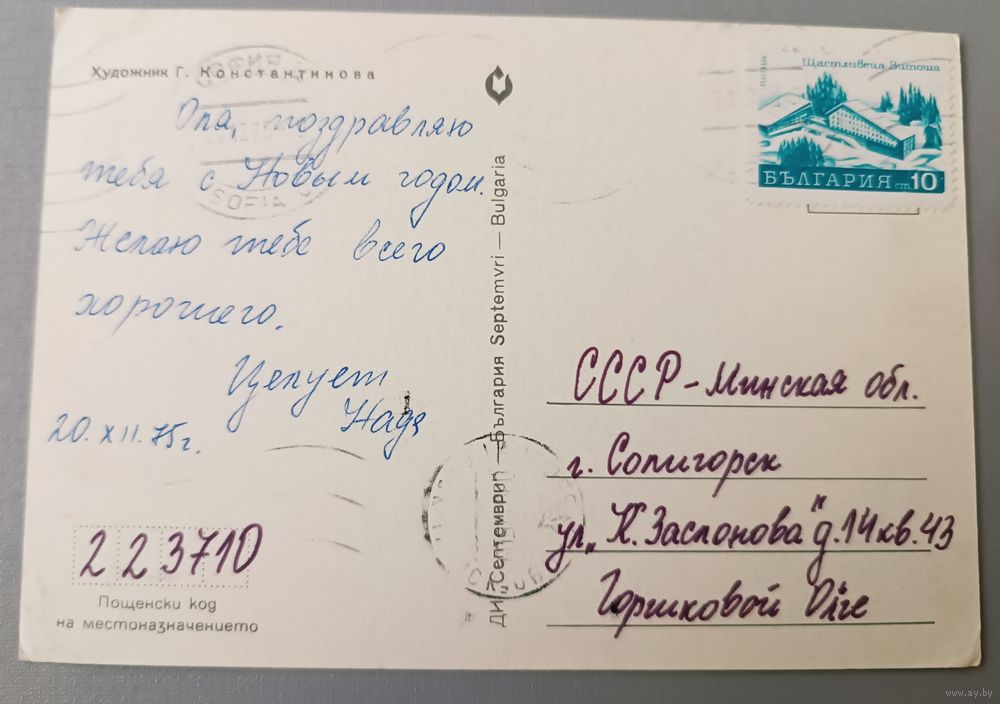 Художник Г. Константинова
Оля, поздравляю
тебя с Новым годом.
Желаю тебе всего
хорошего.
Целует
Надя
20.XII.75г.
223710
Пощенски код
на местоназначението
ДИ „Септември" — България Septemvri — Bulgaria
SOFIA
поща
Щастливеца Витоша
БЪЛГАРИЯ ст 10
СССР - Минская обл.
г. Солигорск
ул „К. Заслонова" д. 14 кв. 43
Горшковой Олге
www.ay.by